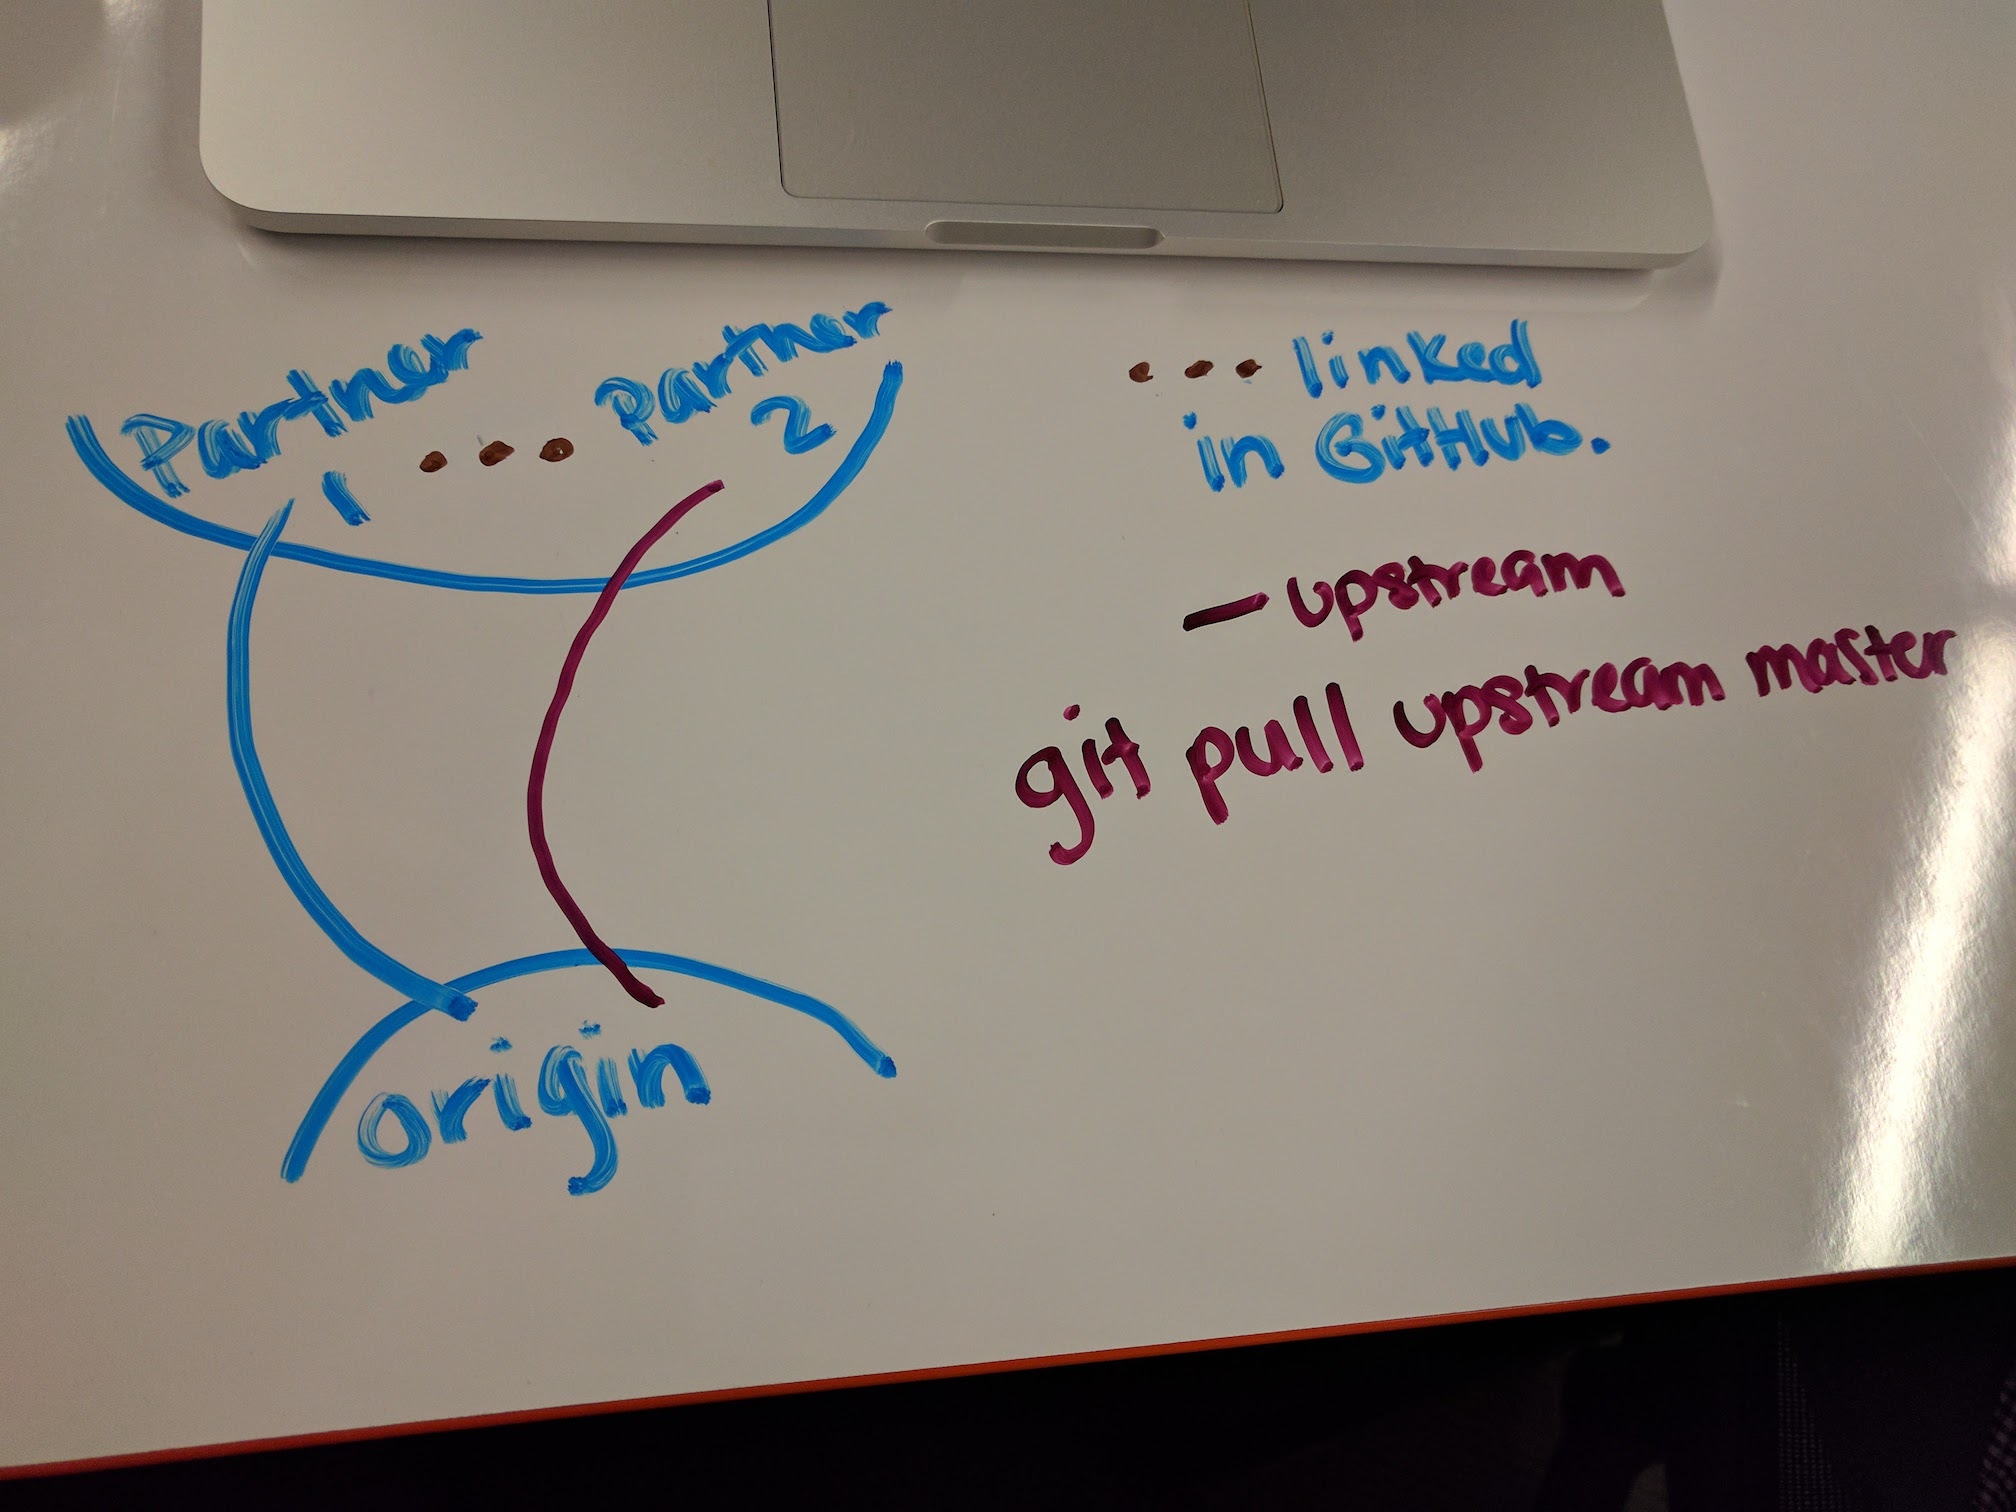 Partner
1 ... Partner
2
origin
... linked
in GitHub.
— upstream
git pull upstream master